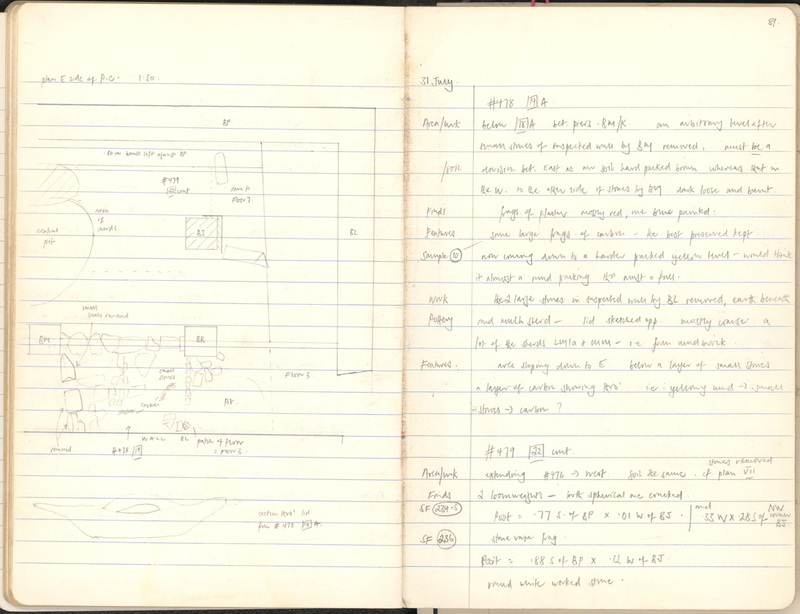 plan E side of P.C. 1:50.
BP
#479
22 cont
same as
Floor 3
area
of
sherds
central
pit
BJ
BL
small
stones removed
BM
BK
small
stones
carbon
Floor 3
BK
WALL
BL
patch of floor
= floor 3
removed
#478 19
section thro' lid
from #478 19 A.
89.
31 July.
#478 19 A
Area/wrk below 18 A bet. piers BM/K an arbitrary level after
small stones of suspected wall by BM removed, must be a
/soil division bet. East as our soil hard packed brown whereas that in
the W. to the other side of stones by BM dark loose and burnt.
Finds frags of plaster mostly red, one blue painted.
Features some large frags of carbon – the best preserved kept.
Sample 10 now coming down to a harder packed yellow level – would think
it almost a mud packing
Work the 2 large stones in suspected wall by BL removed, earth beneath
Pottery mud with sherd – lid sketched opp. mostly coarse a
lot of the sherds – i.e. from mudbrick.
Features. area sloping down to E below a layer of small stones
a layer of carbon showing thro' i.e. yellowy mud → small
stones → carbon?
#479 22 cont.
stones removed
Area/wrk extending #476 → west. Soil the same. cf plan VII
Finds 2 loomweights – both spherical one cracked.
SF 234-5 Posit = .77 S. of BP × .01 W of BJ. 33 W × 28 S of NW corner BJ.
SF 236 stone vase frag.
Posit = .88 S of BP × .12 W of BJ
round white worked stone.